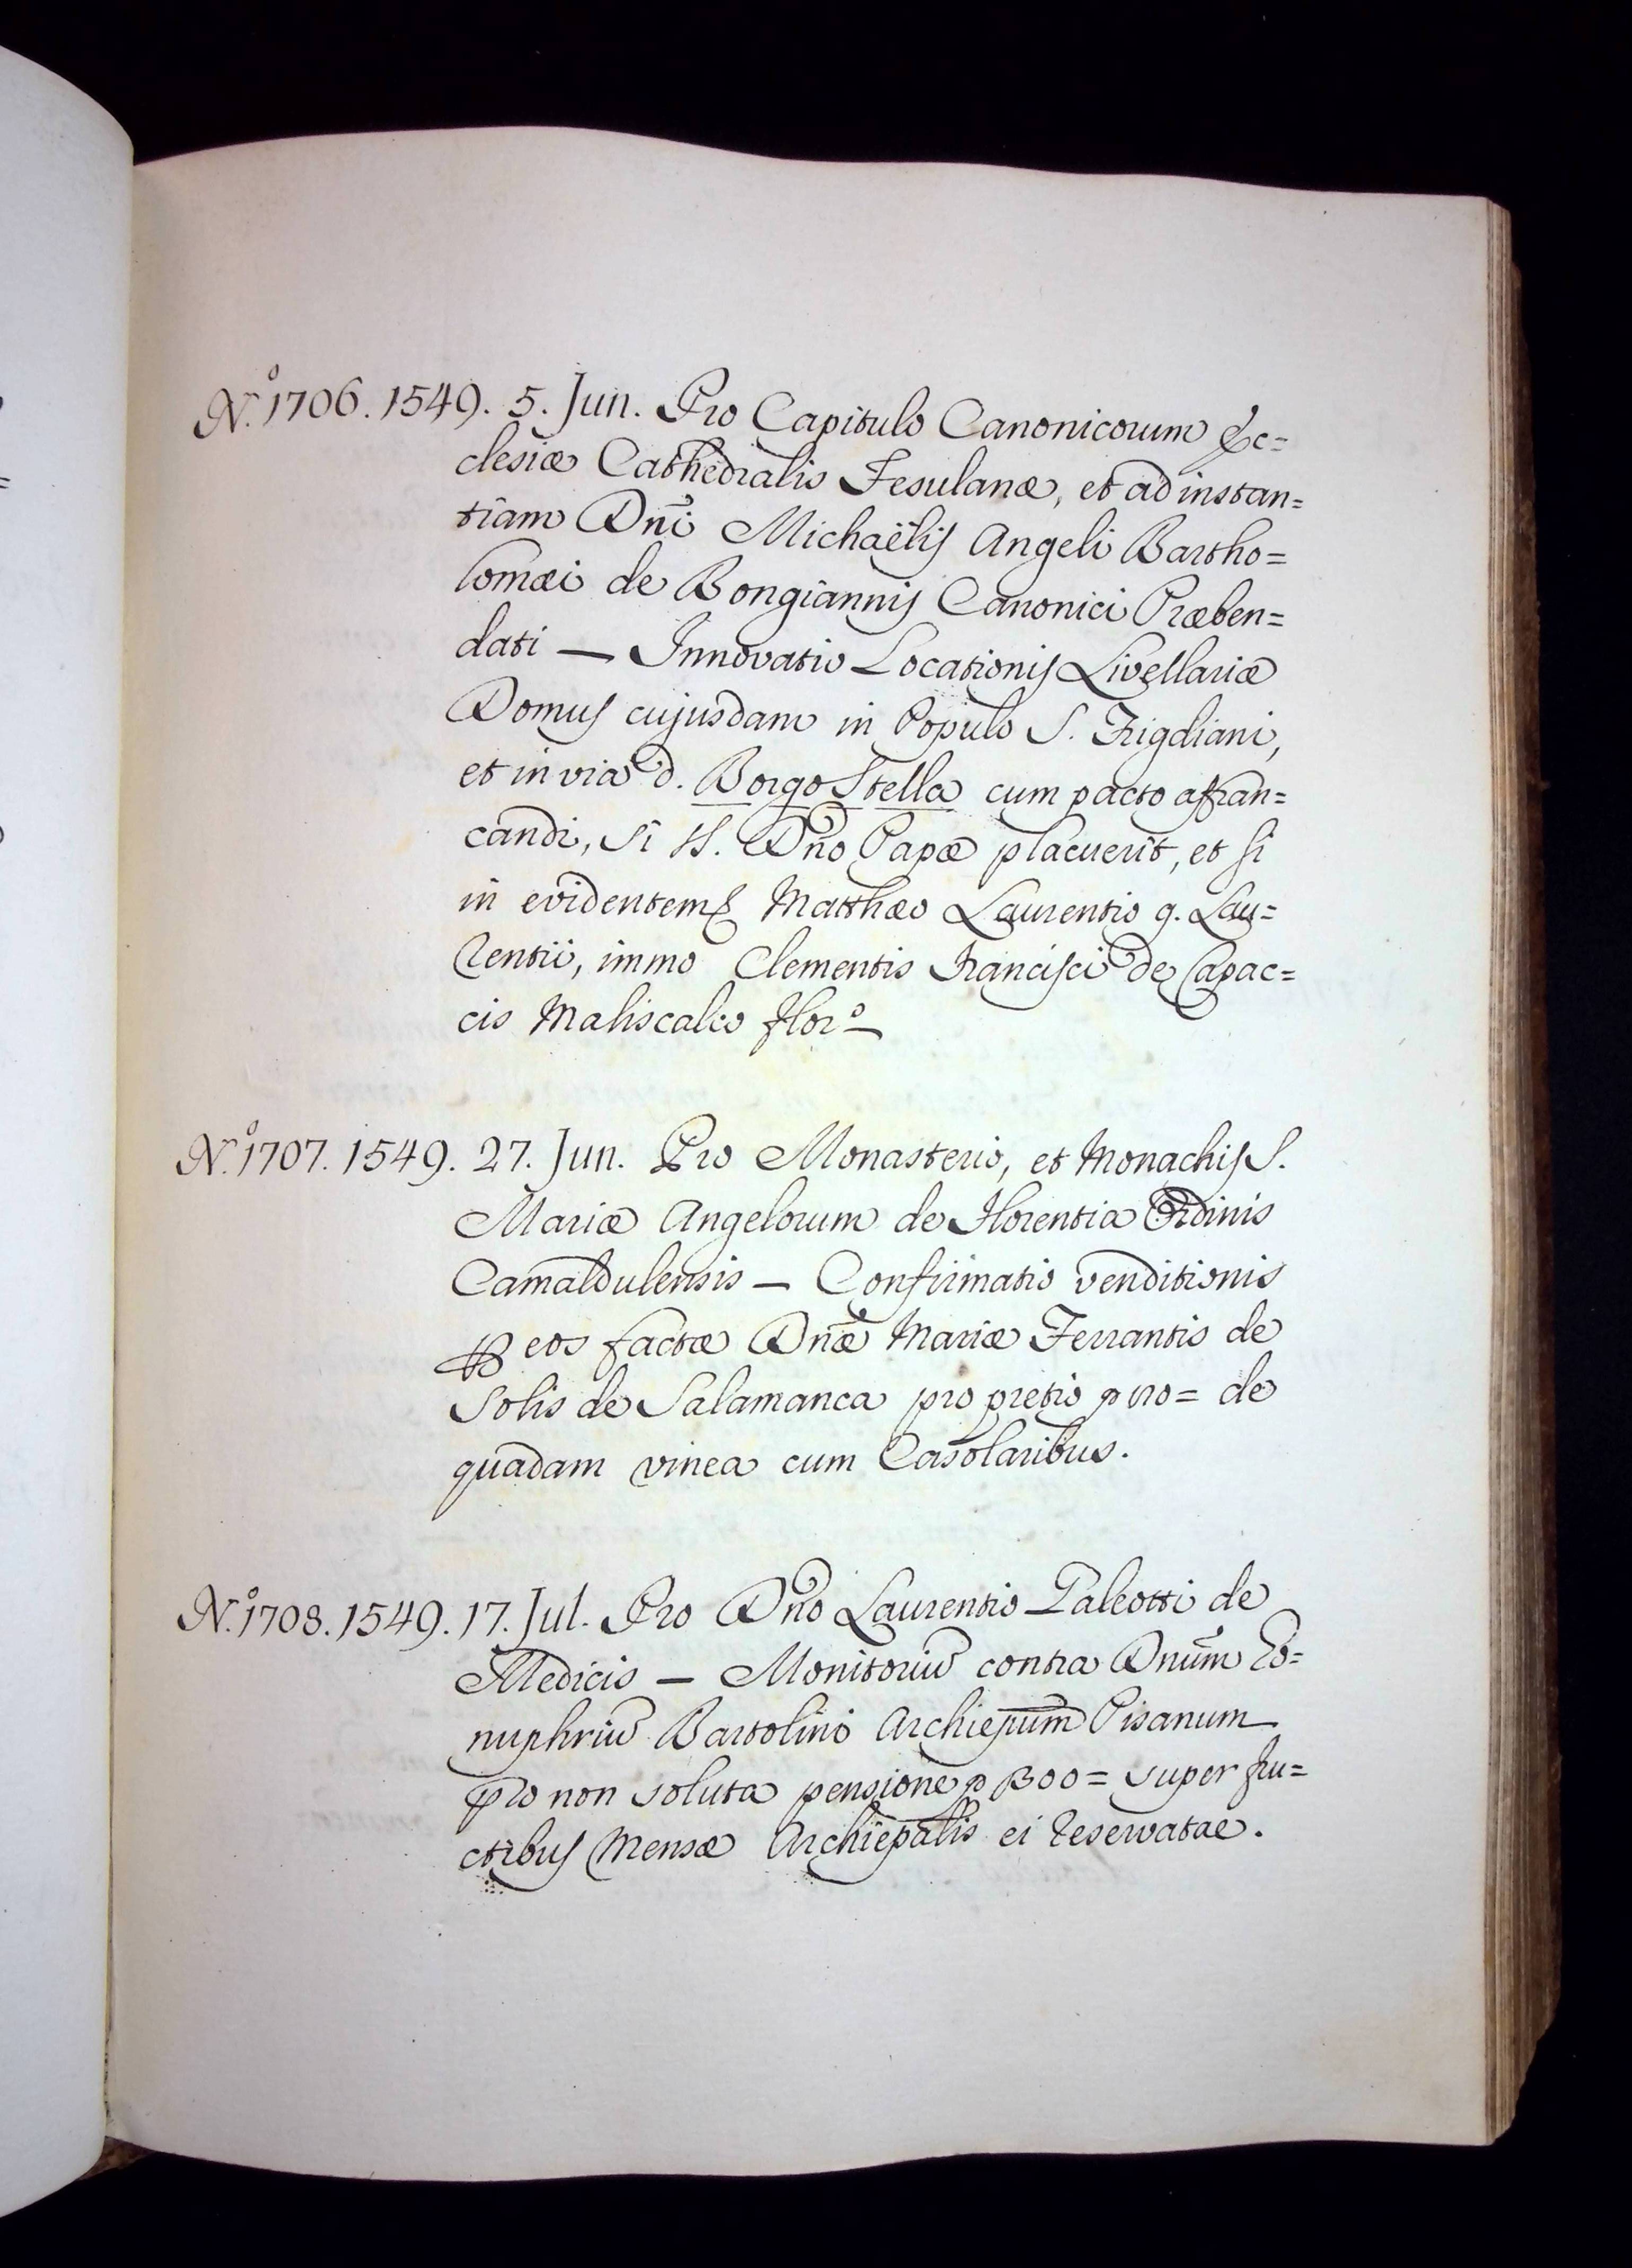 N.º 1706. 1549. 5. Jun. Pro Capitulo Canonicorum Ec=
clesiæ Cathedralis Fesulanæ, et ad instan=
tiam Dnī Michaëlis Angeli Bartho=
lomæi de Bongiannis Canonici Præben=
dati — Innovatio Locationis Livellariæ
Domus cujusdam in Populo S. Frigdiani,
et in via d. Borgo Stella cum pacto affran=
candi, si SS. Dño Papæ placuerit, et si
in evidentem Matthæo Laurentio q. Lau=
rentii, immo Clementis Francisci de Capac=
cis Maliscalco Flor.º
N.º 1707. 1549. 27. Jun. Pro Monasterio, et Monachis S.
Mariæ Angelorum de Florentia Ordinis
Camaldulensis — Confirmatio venditionis
per eos factæ Dñæ Mariæ Ferrantis de
Solis de Salamanca pro pretio de
quadam vinea cum Casolaribus.
N.º 1708. 1549. 17. Jul. Pro Dño Laurentio Galeotti de
Medicis — Monitoriū contra Dnūm Ho=
nuphriū Bartolini Archiepūm Pisanum
pro non soluta pensione 1300= super fru=
ctibus Mensæ Archiepālis ei reservatae.